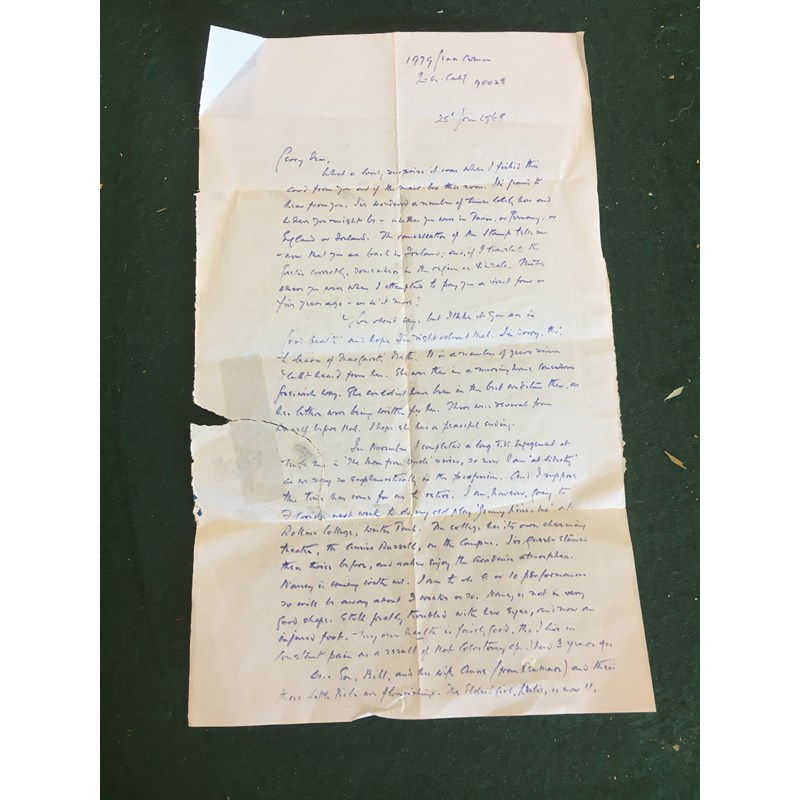 1979 Grace
L.A. Calif 90028
25th Jan 1968
Gerry Dear,
What a lovely surprise it was when I fished this
card from you out of the mail-box this noon. It's grand to
hear from you. I've wondered a number of times lately how and
where you might be – whether you were in Paris, or Germany, or
England or Ireland. The of the stamp tells me
– now that you are back in Ireland; and, if I translate the
correctly, somewhere in the region of Kinsale. That's
where you were when I attempted to pay you a visit four or
five years ago – or is it more?
You don't say, but I take it you are in
good health and hope I'm right about that. I'm sorry, tho',
to learn of Margaret's death. It is a number of years since
I last heard from her. She was then in a nursing home somewhere
way. She couldn't have been in the best condition then, as
her letters were being written for her. There were several from
herself before that. I hope she had a peaceful ending.
In November I completed a long T.V. engagement at
in 'The Man from Uncle' series, so now I am 'at liberty'
as we say so euphemistically in the profession. And I suppose
the time has come for me to retire. I am, however, going to
Florida next week to do my old play 'Jenny Kissed Me' at
Rollins College, Winter Park. The college has its own charming
theatre, the Annie Russell, on the campus. I've guest-starred
there twice before, and rather enjoy the academic atmosphere.
Nancy is coming with me. I am to do 9 or 10 performances
so will be away about 3 weeks or so. Nancy is not in very
good shape. Still greatly troubled with her eyes, and now an
injured foot. My own health is fairly good, tho' I live in
constant pain as a result of that colostomy op. I had 3 years ago.
Our son, Bill, and his wife Anne (from) and their
three little girls are flourishing. The eldest girl, is now 11,